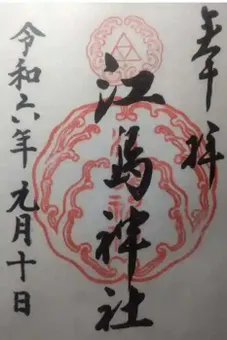 奉拝
江島神社
令和六年 元月十日